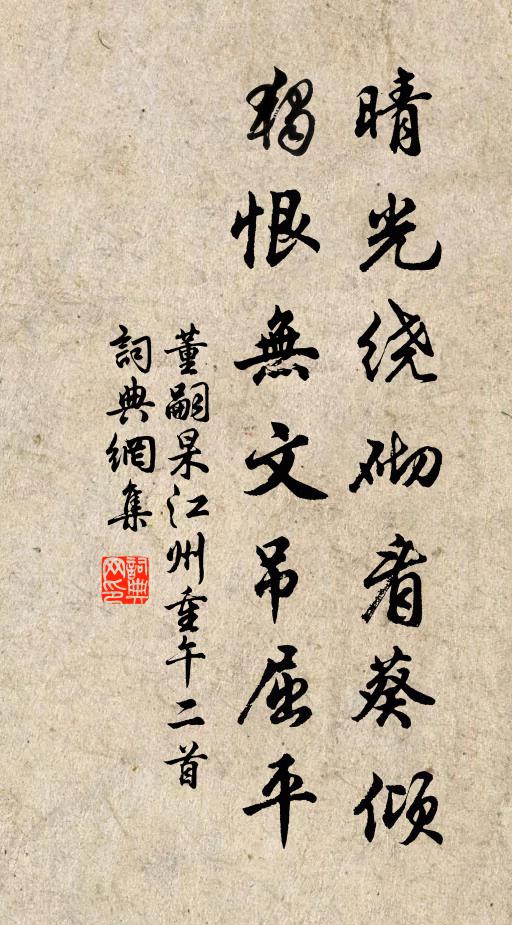 晴光绕砌看葵倾
独恨無文吊屈平
董嗣杲江州重午二首
詞典網集
詞典网印